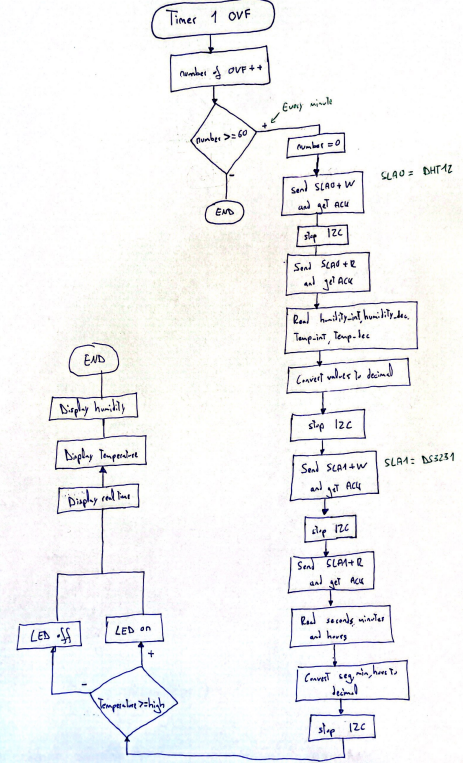 Timer 1 OVF
number of OVF++
number >= 60
+
Every minute
-
END
number = 0
SLA0 = DHT12
Send SLA0+W
and get ACK
stop I2C
Send SLA0+R
and get ACK
Read humidity_int, humidity_dec,
Temp_int, Temp_dec
Convert values to decimal
stop I2C
SLA1 = DS3231
Send SLA1+W
and get ACK
stop I2C
Send SLA1+R
and get ACK
Read seconds, minutes
and hours
Convert seg, min, hours to
decimal
stop I2C
Temperature >= high
-
+
LED off
LED on
Display real time
Display Temperature
Display humidity
END